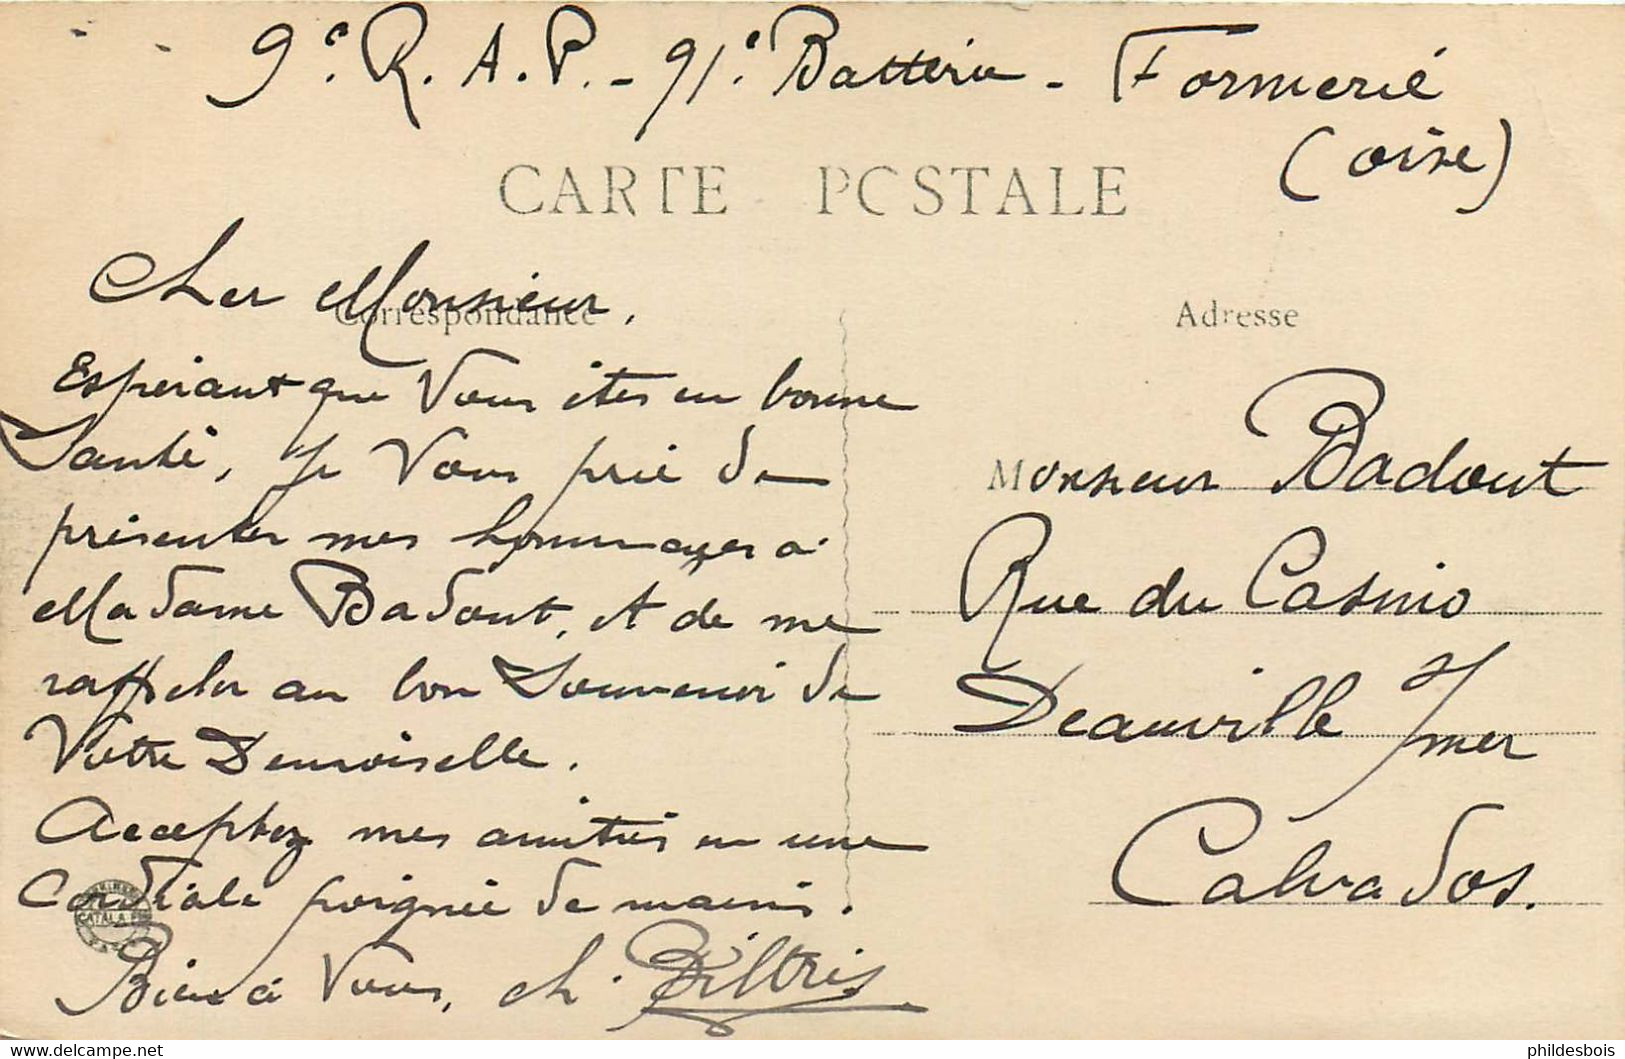 9e. R. A. P. - 91e. Batterie - Formerie
(oise)
CARTE POSTALE
Cher Monsieur,
Correspondance
Espérant que Vous êtes en bonne
Santé, Je Vous prie de
présenter mes hommages à
Madame Badout, et de me
rappeler au bon Souvenir de
Votre Demoiselle.
Acceptez mes amitiés en une
Cordiale poignée de mains.
Bien à Vous, Ch.
CATALA
Adresse
Monsieur Badout
Rue du Casino
Deauville s/mer
Calvados.
phildesbois
https://www.delcampe.net